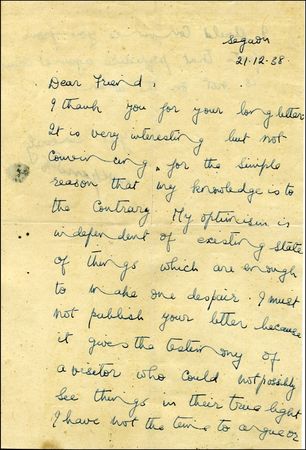 Segaon
21.12.38
Dear Friend,
I thank you for your long letter
It is very interesting but not
Convincing, for the simple
reason that my knowledge is to
the Contrary. My optimism is
independent of existing state
of things which are enough
to make one despair. I must
not publish your letter because
it gives the testimony of
a visitor who could not possibly
see things in their true light
I have not the time to argue or